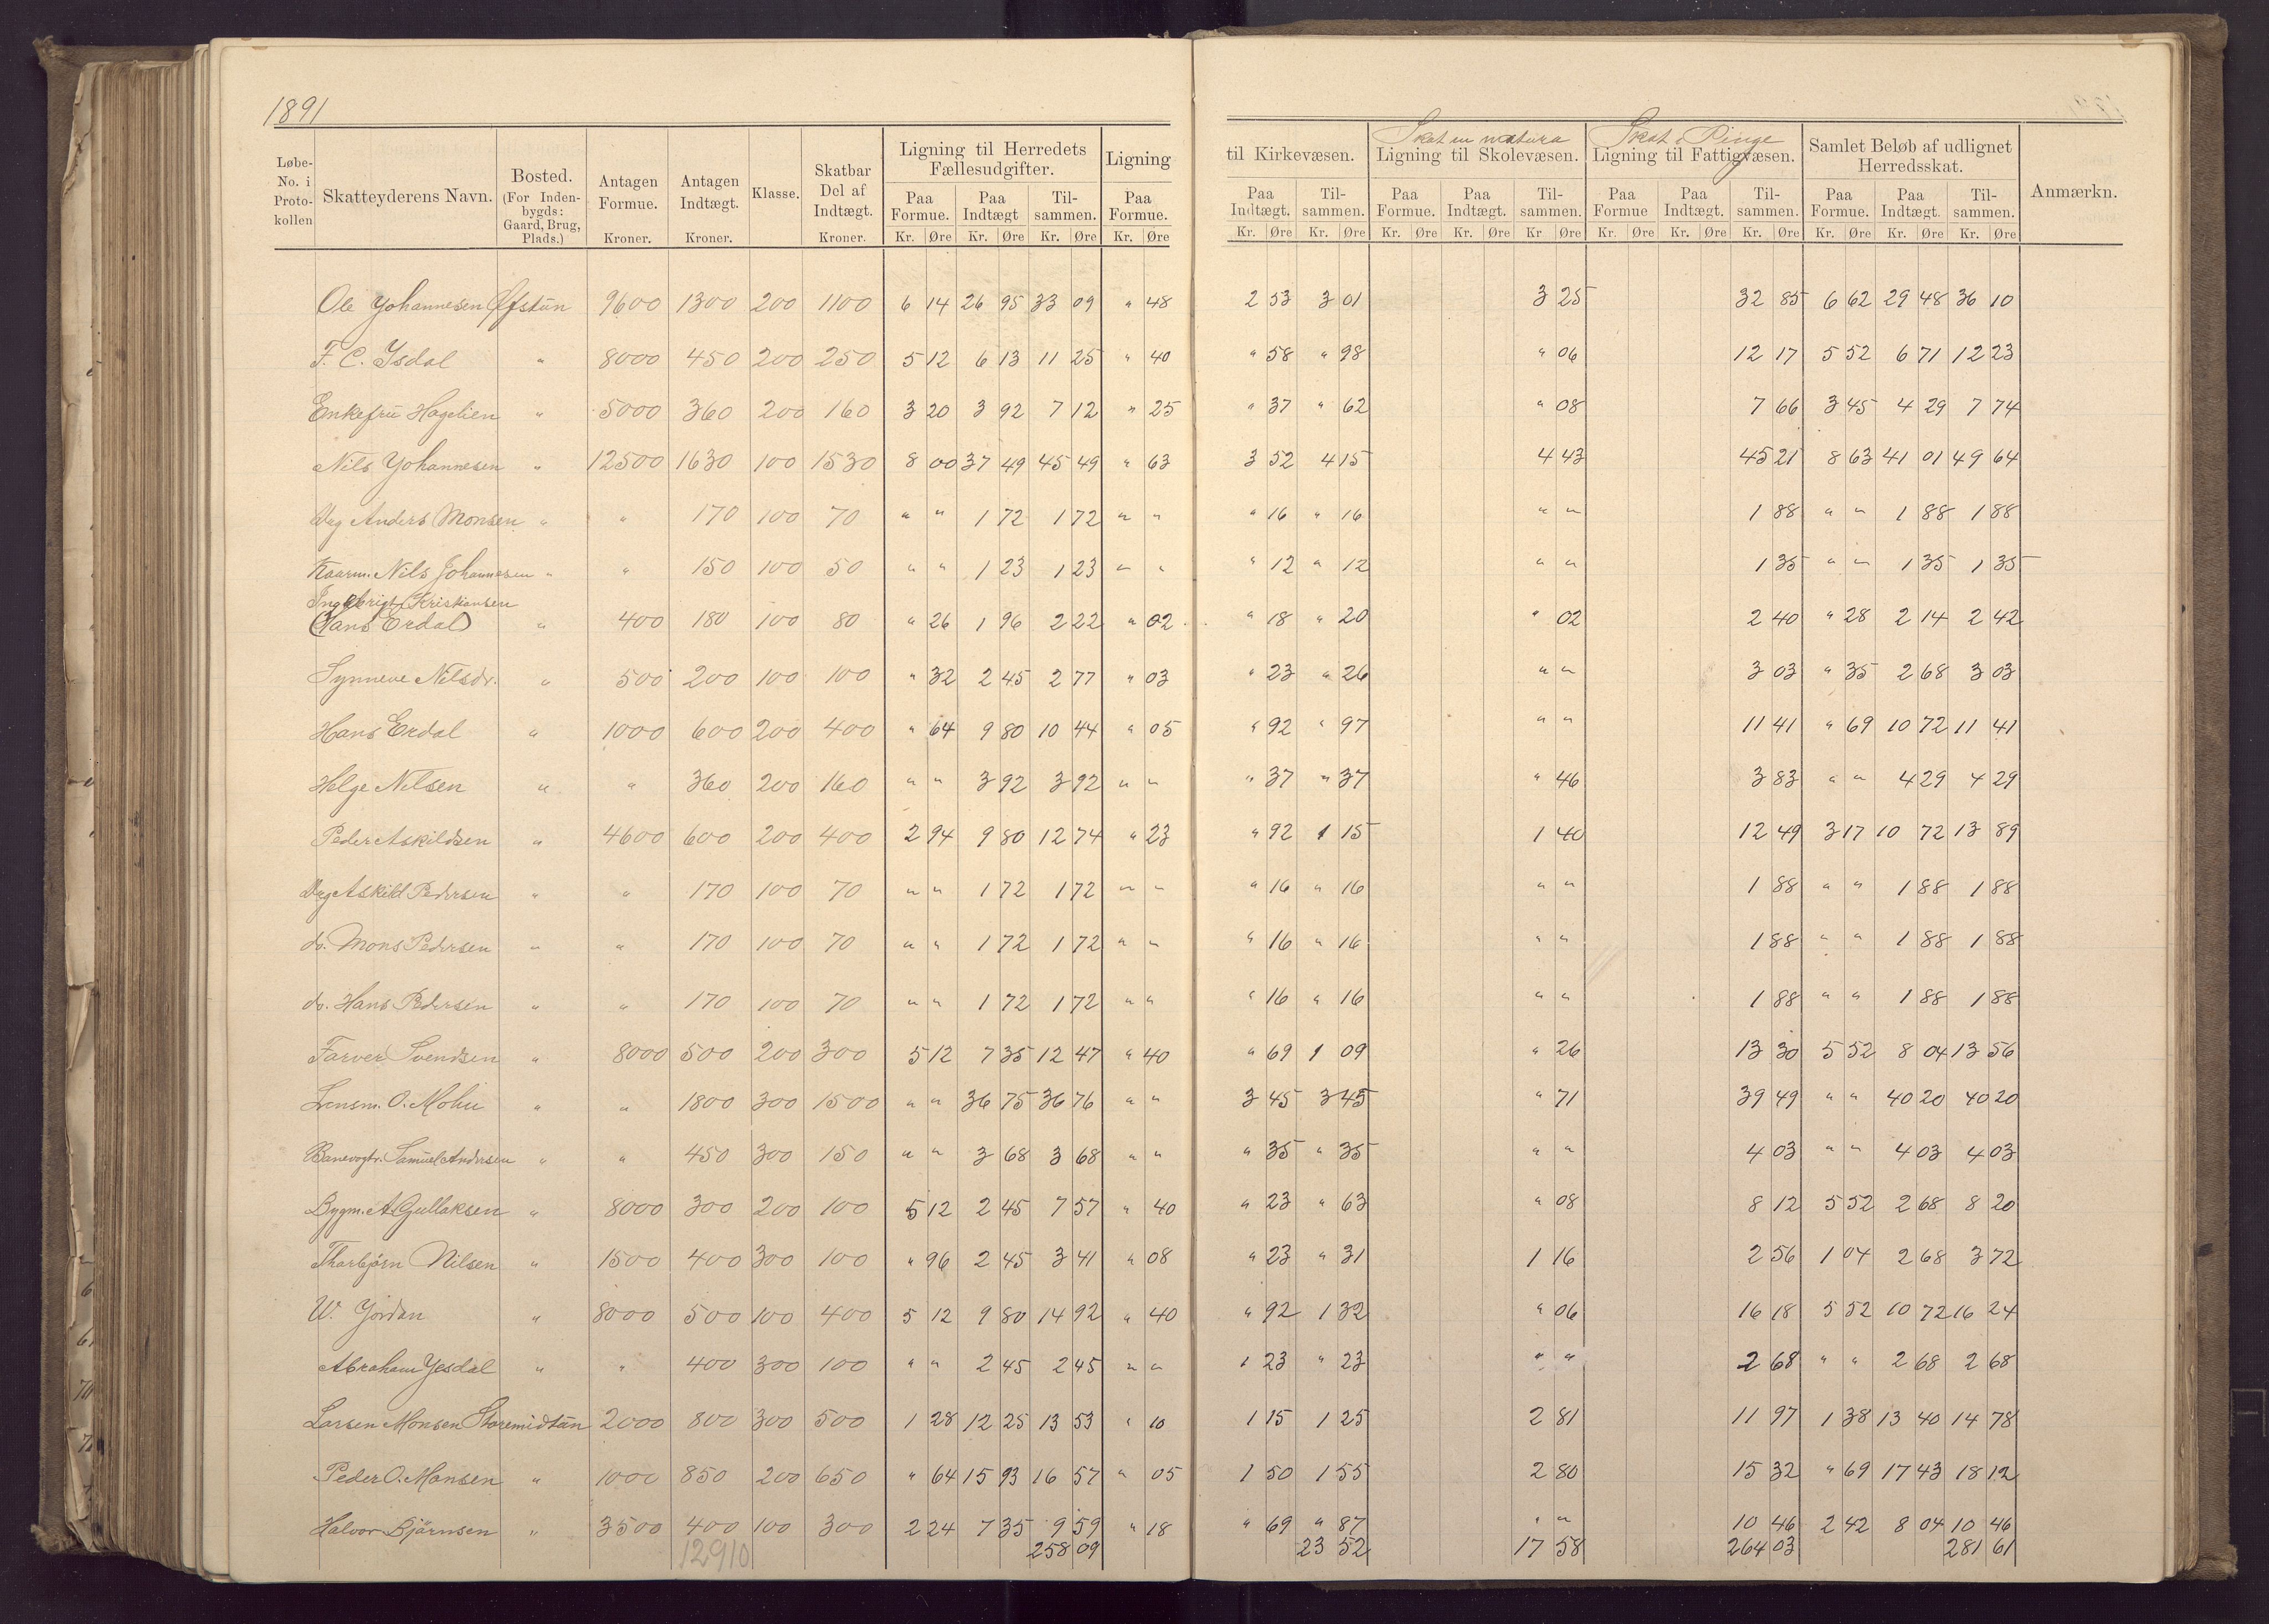 1891
Løbe-No. i Proto-kollen Skatteyderens Navn. Bosted. (For Inden-bygds: Gaard, Brug, Plads.) Antagen Formue. Kroner. Antagen Indtægt. Kroner. Klasse. Skatbar Del af Indtægt. Kroner. Ligning til Herredets Fællesudgifter. Paa Formue. Kr. Øre Paa Indtægt Kr. Øre Til-sammen. Kr. Øre Ligning Paa Formue. Kr. Øre
til Kirkevæsen. Paa Indtægt. Kr. Øre Til-sammen. Kr. Øre Skat en natura Ligning til Skolevæsen. Paa Formue. Kr. Øre Paa Indtægt. Kr. Øre Til-sammen. Kr Øre Skat i Penge Ligning til Fattigvæsen. Paa Formue Kr. Øre Paa Indtægt. Kr. Øre Til-sammen. Kr. Øre Samlet Beløb af udlignet Herredsskat. Paa Formue. Kr. Øre Paa Indtægt. Kr. Øre Til-sammen. Kr. Øre Anmærkn.
Ole Johannesen Øfstün 9600 1300 200 1100 6 14 26 95 33 09 " 48 2 53 3 01 3 25 32 85 6 62 29 48 36 10
F. C. Isdal " 8000 450 200 250 5 12 6 13 11 25 " 40 " 58 " 98 " 06 12 17 5 52 6 71 12 23
Enkefrü Hagelien " 5000 360 200 160 3 20 3 92 7 12 " 25 " 37 " 62 " 08 7 66 3 45 4 29 7 74
Nils Johannesen " 12500 1630 100 1530 8 00 37 49 45 49 " 63 3 52 4 15 4 43 45 21 8 63 41 01 49 64
Ung Anders Monsen " " 170 100 70 " " 1 72 1 72 " " " 16 " 16 " " 1 88 " " 1 88 1 88
Kaarm. Nils Johannesen " " 150 100 50 " " 1 23 1 23 " " " 12 " 12 " " 1 35 " " 1 35 1 35
Ingebrigt Kristiansen
(Hans Erdal) " 400 180 100 80 " 26 1 96 2 22 " 02 " 18 " 20 " 02 2 40 " 28 2 14 2 42
Synneve Nilsdr. " 500 200 100 100 " 32 2 45 2 77 " 03 " 23 " 26 " " 3 03 " 35 2 68 3 03
Hans Erdal " 1000 600 200 400 " 64 9 80 10 44 " 05 " 92 " 97 " " 11 41 " 69 10 72 11 41
Helge Nilsen " " 360 200 160 " " 3 92 3 92 " " " 37 " 37 " 46 3 83 " " 4 29 4 29
Peder Askildsen " 4600 600 200 400 2 94 9 80 12 74 " 23 " 92 1 15 1 40 12 49 3 17 10 72 13 89
Ung Askild Pedersen " " 170 100 70 " " 1 72 1 72 " " " 16 " 16 " " 1 88 " " 1 88 1 88
do. Mons Pedersen " " 170 100 70 " " 1 72 1 72 " " " 16 " 16 " " 1 88 " " 1 88 1 88
do. Hans Pedersen " " 170 100 70 " " 1 72 1 72 " " " 16 " 16 " " 1 88 " " 1 88 1 88
Farver Svendsen " 8000 500 200 300 5 12 7 35 12 47 " 40 " 69 1 09 " 26 13 30 5 52 8 04 13 56
Lensm. O. Mohn " " 1800 300 1500 " " 36 75 36 76 " " 3 45 3 45 " 71 39 49 " " 40 20 40 20
Banevogtr. Samüel Andersen " " 450 300 150 " " 3 68 3 68 " " " 35 " 35 " " 4 03 " " 4 03 4 03
Bygm. A Gullaksen " 8000 300 200 100 5 12 2 45 7 57 " 40 " 23 " 63 " 08 8 12 5 52 2 68 8 20
Thorbjørn Nilsen " 1500 400 300 100 " 96 2 45 3 41 " 08 " 23 " 31 1 16 2 56 1 04 2 68 3 72
W. Jordan " 8000 500 100 400 5 12 9 80 14 92 " 40 " 92 1 32 " 06 16 18 5 52 10 72 16 24
Abraham Yesdal " " 400 300 100 " " 2 45 2 45 " " 1 23 " 23 " " 2 68 " " 2 68 2 68
Larsen Monsen Storemidtün 2000 800 300 500 1 28 12 25 13 53 " 10 1 15 1 25 2 81 11 97 1 38 13 40 14 78
Peder O. Monsen " 1000 850 200 650 " 64 15 93 16 57 " 05 1 50 1 55 2 80 15 32 " 69 17 43 18 12
Halvor Bjørnsen " 3500 400 100 300 2 24 7 35 9 59 " 18 " 69 " 87 " " 10 46 2 42 8 04 10 46
12910 258 09 23 52 17 58 264 03 281 61